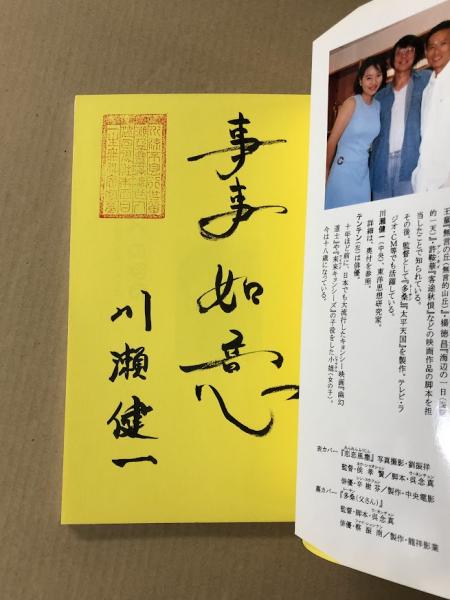 事事如意
川瀬健一
王童『無言の丘(無言的山丘)』・楊徳昌『海辺の一日(海灘
的一天)』・許鞍華『客途秋恨』などの映画作品の脚本を担
当したことで知られている。
その後、監督として『多桑』『太平天国』を製作。テレビ・ラ
ジオ・CM等でも活躍している。
川瀬健一(中央)、東洋思想研究家。
詳細は、奥付を参照。
テンテン(左)は俳優。
十年ほど前に、日本でも大流行したキョンシー映画『幽幻
道士』や『来来キョンシーズ』の子役をした小娘(女の子)。
今は十八歳になっている。
表カバー『恋恋風塵』写真撮影・劉振祥
監督・侯孝賢/脚本・呉念真
俳優・辛樹芬/製作・中央電影
裏カバー『多桑(父さん)』
監督・脚本・呉念真
俳優・蔡振南/製作・龍祥影業